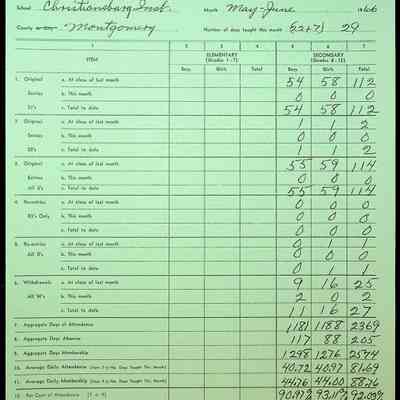 School Christiansburg Inst. Month May-June 1966
County or City Montgomery Number of days taught this month (22+7) 29
1 2 3 4 5 6 7
ITEM ELEMENTARY (Grades 1-7) SECONDARY (Grades 8-12)
Boys Girls Total Boys Girls Total
1. Original a. At close of last month 54 58 112
Entries b. This month 0 0 0
E1's c. Total to date 54 58 112
2. Original a. At close of last month 1 1 2
Entries b. This month 0 0 0
E2's c. Total to date 1 1 2
3. Original a. At close of last month 55 59 114
Entries b. This month 0 0 0
All E's c. Total to date 55 59 114
4. Re-entries a. At close of last month 0 0 0
R3's Only b. This month 0 0 0
c. Total to date 0 0 0
5. Re-entries a. At close of last month 0 1 1
All R's b. This month 0 0 0
c. Total to date 0 1 1
6. Withdrawals a. At close of last month 9 16 25
All W's b. This month 2 0 2
c. Total to date 11 16 27
7. Aggregate Days of Attendance 1181 1188 2369
8. Aggregate Days Absence 117 88 205
9. Aggregate Days Membership 1298 1276 2574
10. Average Daily Attendance (Item 7 ÷ No. Days Taught This Month) 40.72 40.97 81.69
11. Average Daily Membership (Item 9 ÷ No. Days Taught This Month) 44.76 44.00 88.76
12. Per Cent of Attendance (7 ÷ 9) 90.97% 93.11% 92.03%